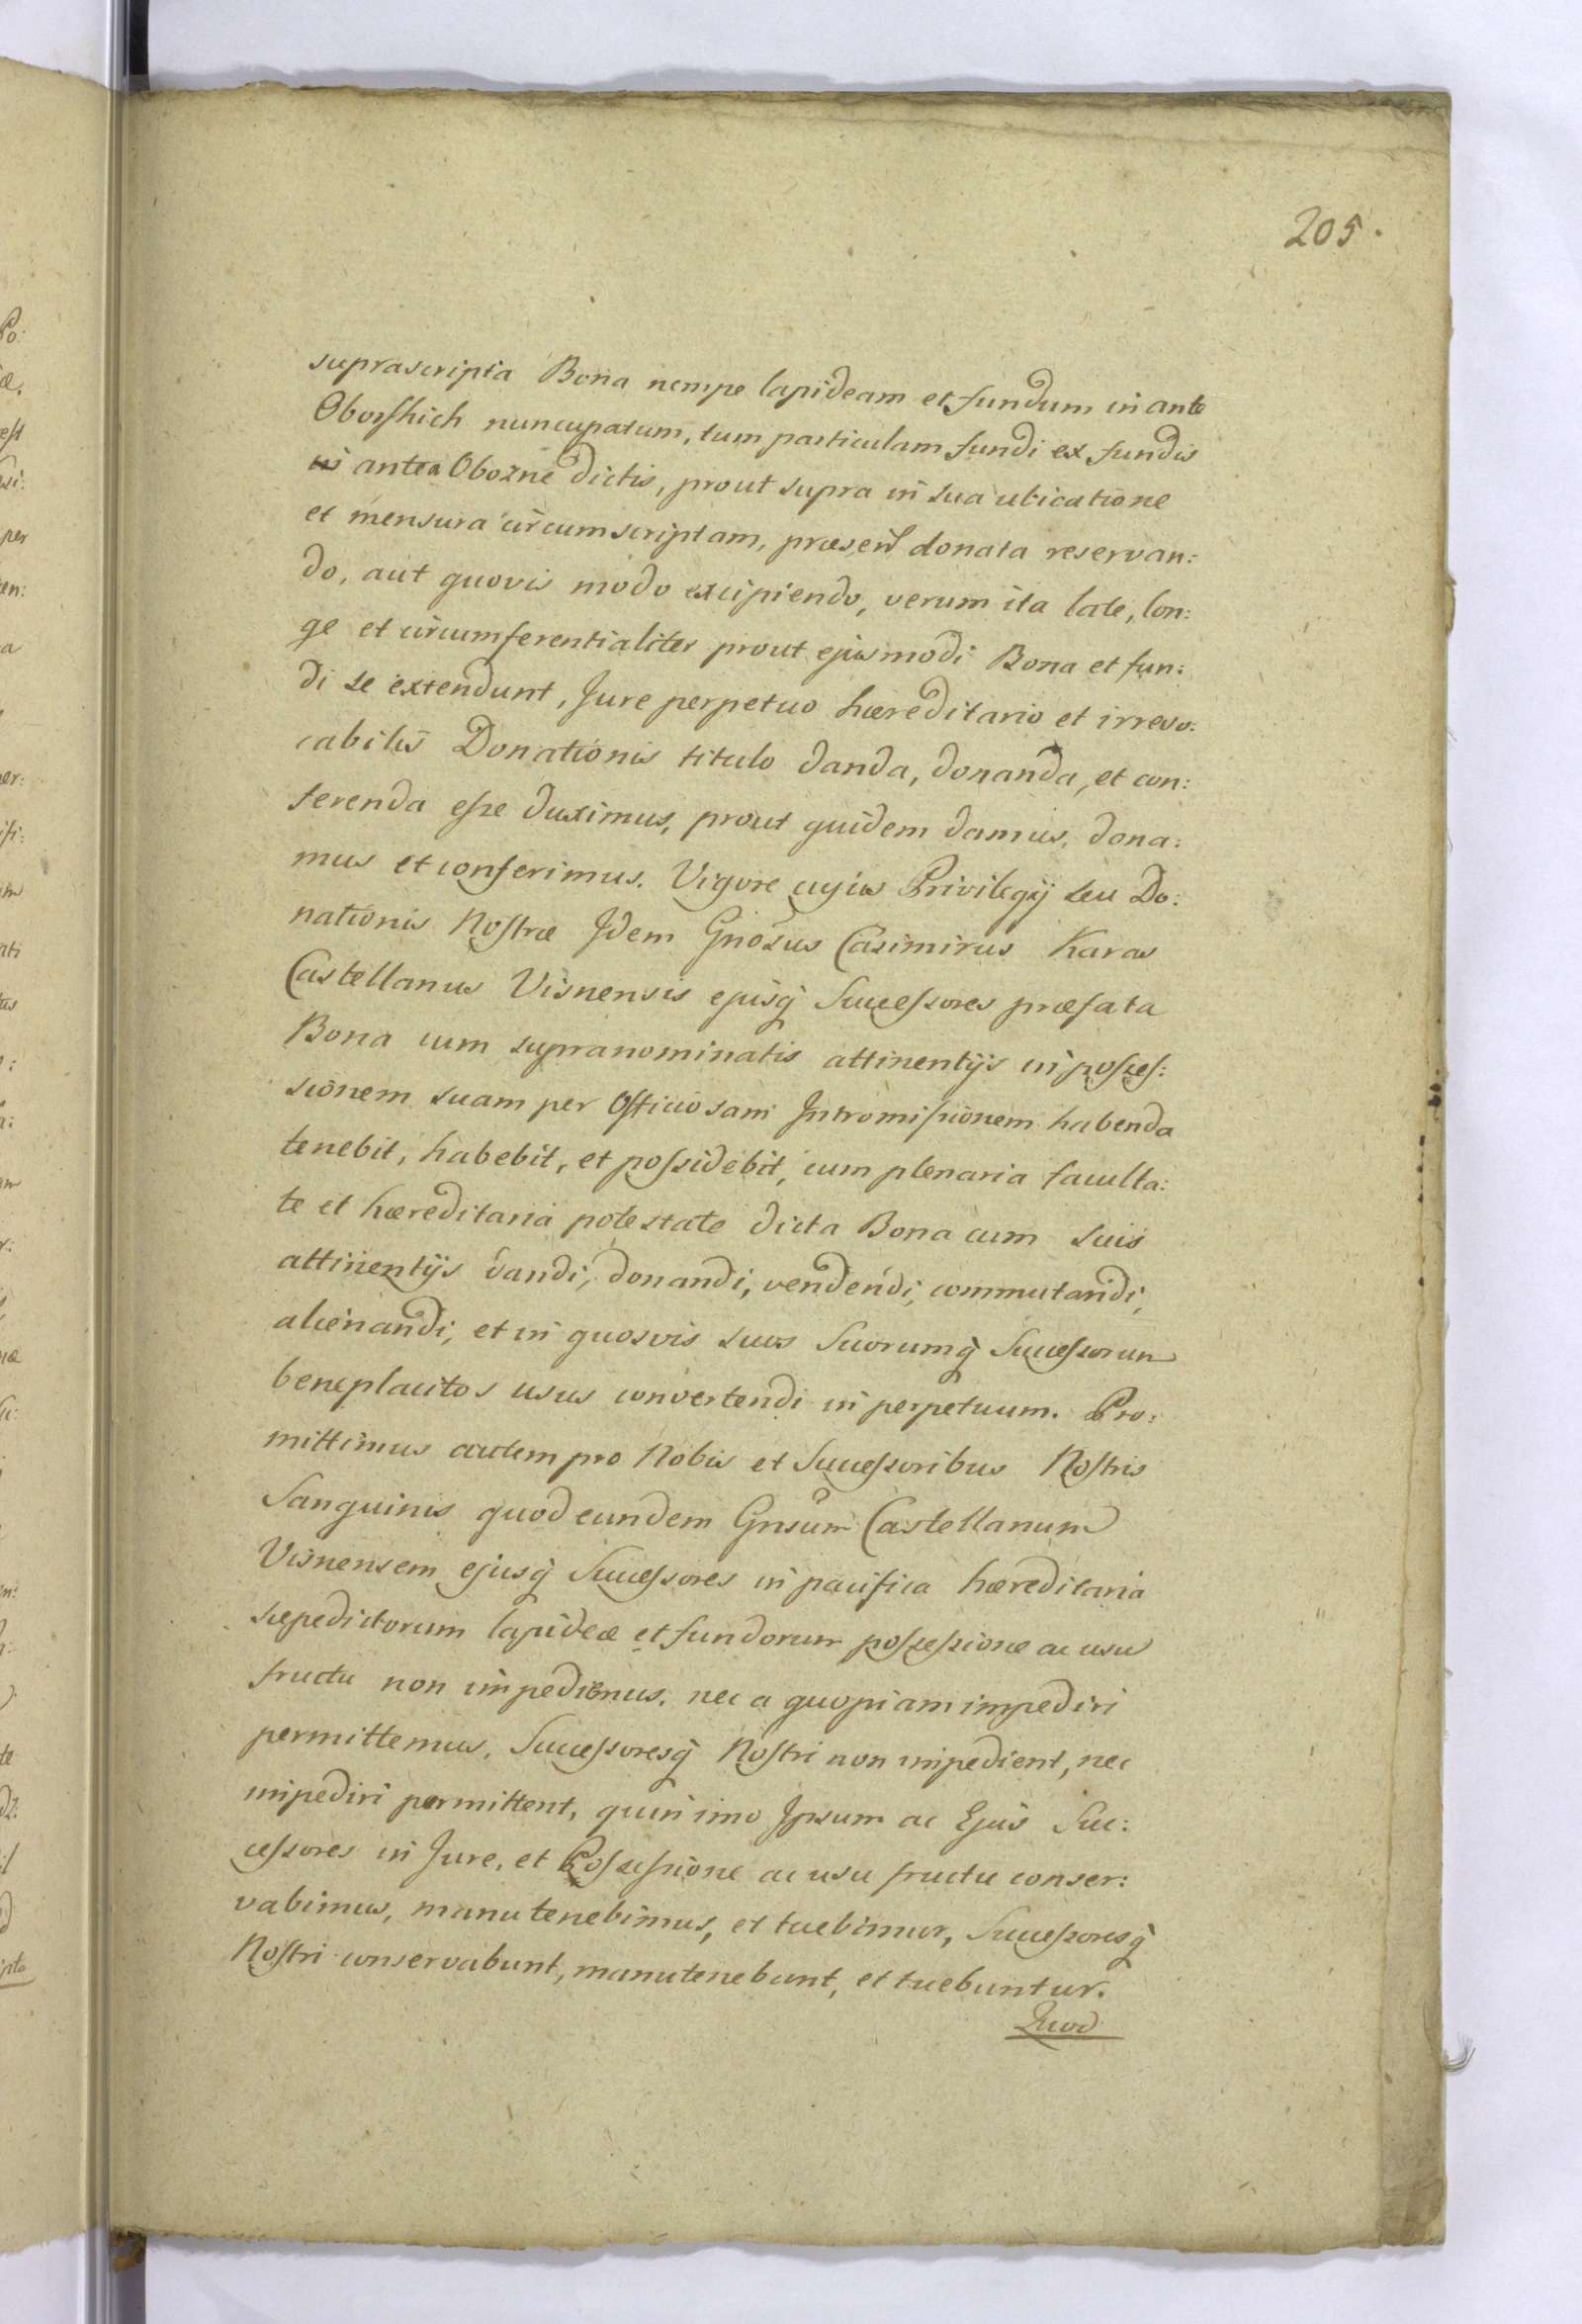 205.
supras­cripta Bona nempe lapideam et fundum in ante
Oborskich nuncupatum, tum particulam fundi ex fundis
antea Obozne dictis, prout supra in sua ubicatione
et mensura circumscriptam, præsent donata reservan:
do, aut quovis modo excipiendo, verum ita late, lon:
ge et circumferentialiter prout ejusmodi Bona et fun:
di se extendunt, Jure perpetuo hæreditario et irrevo:
cabilis Donationis titulo danda, donanda, et con:
ferenda eſse duximus, prout quidem damus, dona:
mus et conferimus. Vigore cujus Privilegij seu Do:
nationis Noſtræ Idem Gnosus Casimirus Karas
Castellanus Visnensis ejusq̀ Succeſsores præfata
Bona cum supranominatis attinentijs in poſseſ:
sionem suam per Officiosam Intromiſsionem habenda
tenebit, habebit, et poſsidebit, cum plenaria faculta:
te et hæreditaria potestate dicta Bona cum suis
attinentijs dandi, donandi, vendendi, commutandi,
alienandi, et in quosvis suos Suorumq̀ Succeſsorum
beneplacitos usus convertendi in perpetuum. Pro:
mittimus autem pro Nobis et Succeſsoribus Noſtris
Sanguinis quod eundem Gnsum Castellanum
Visnensem ejusq̀ Succeſsores in pacifica hæreditaria
sæpedictorum lapideæ et fundorum poſseſsione ac usu
fructu non impediemus, nec a quopiam impediri
permittemus, Succeſsoresq̀ Noſtri non impedient, nec
impediri permittent, quin imo Ipsum ac Ejus Suc:
ceſsores in Jure, et Poſseſsione ac usu fructu conser:
vabimus, manutenebimus, et tuebimur, Succeſsoresq̀
Noſtri conservabunt, manutenebunt, et tuebuntur.
Quod